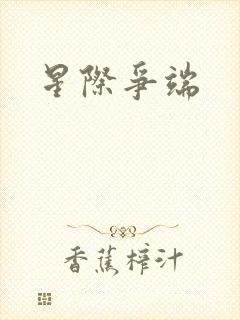 星際爭端
香蕉榨汁